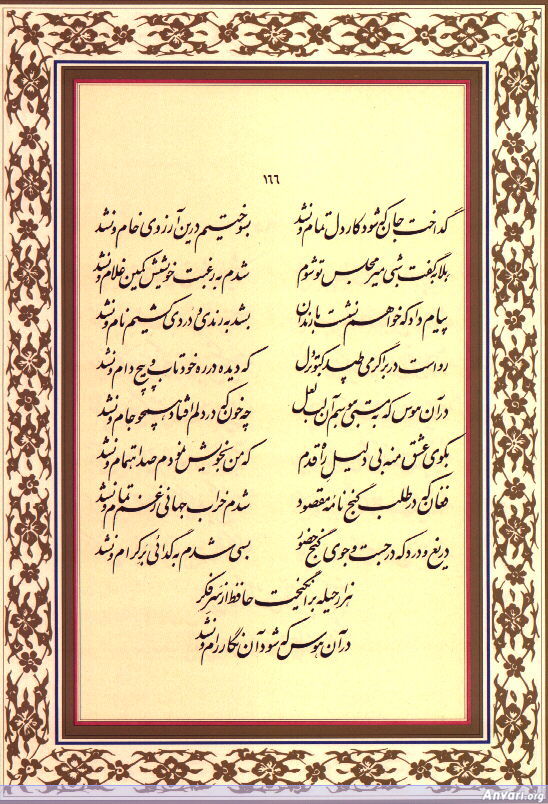 ۱۶۶
گداخت جان که شود کار دل تمام و نشد بسوختیم درین آرزوی خام و نشد
بلابه گفت شبی میر مجلس تو شوم شدم به رغبت خویشش کمین غلام و نشد
پیام داد که خواهم نشست با رندان بشد به رندی و دردی کشیم نام و نشد
رواست در بر اگر می طپد کبوتر دل که دیده در ره خود تاب و پیچ دام و نشد
در آن هوس که بمستی ببوسم آن لب لعل چه خون که در دلم افتاد همچو جام و نشد
بکوی عشق منه بی دلیل راه قدم که من بخویش نمودم صد اهتمام و نشد
فغان که در طلب گنج نامه مقصود شدم خراب جهانی ز غم تمام و نشد
دریغ و درد که در جست و جوی گنج حضور بسی شدم به گدائی بر کرام و نشد
هزار حیله برانگیخت حافظ از سر فکر
در آن هوس که شود آن نگار رام و نشد
AnVari.org